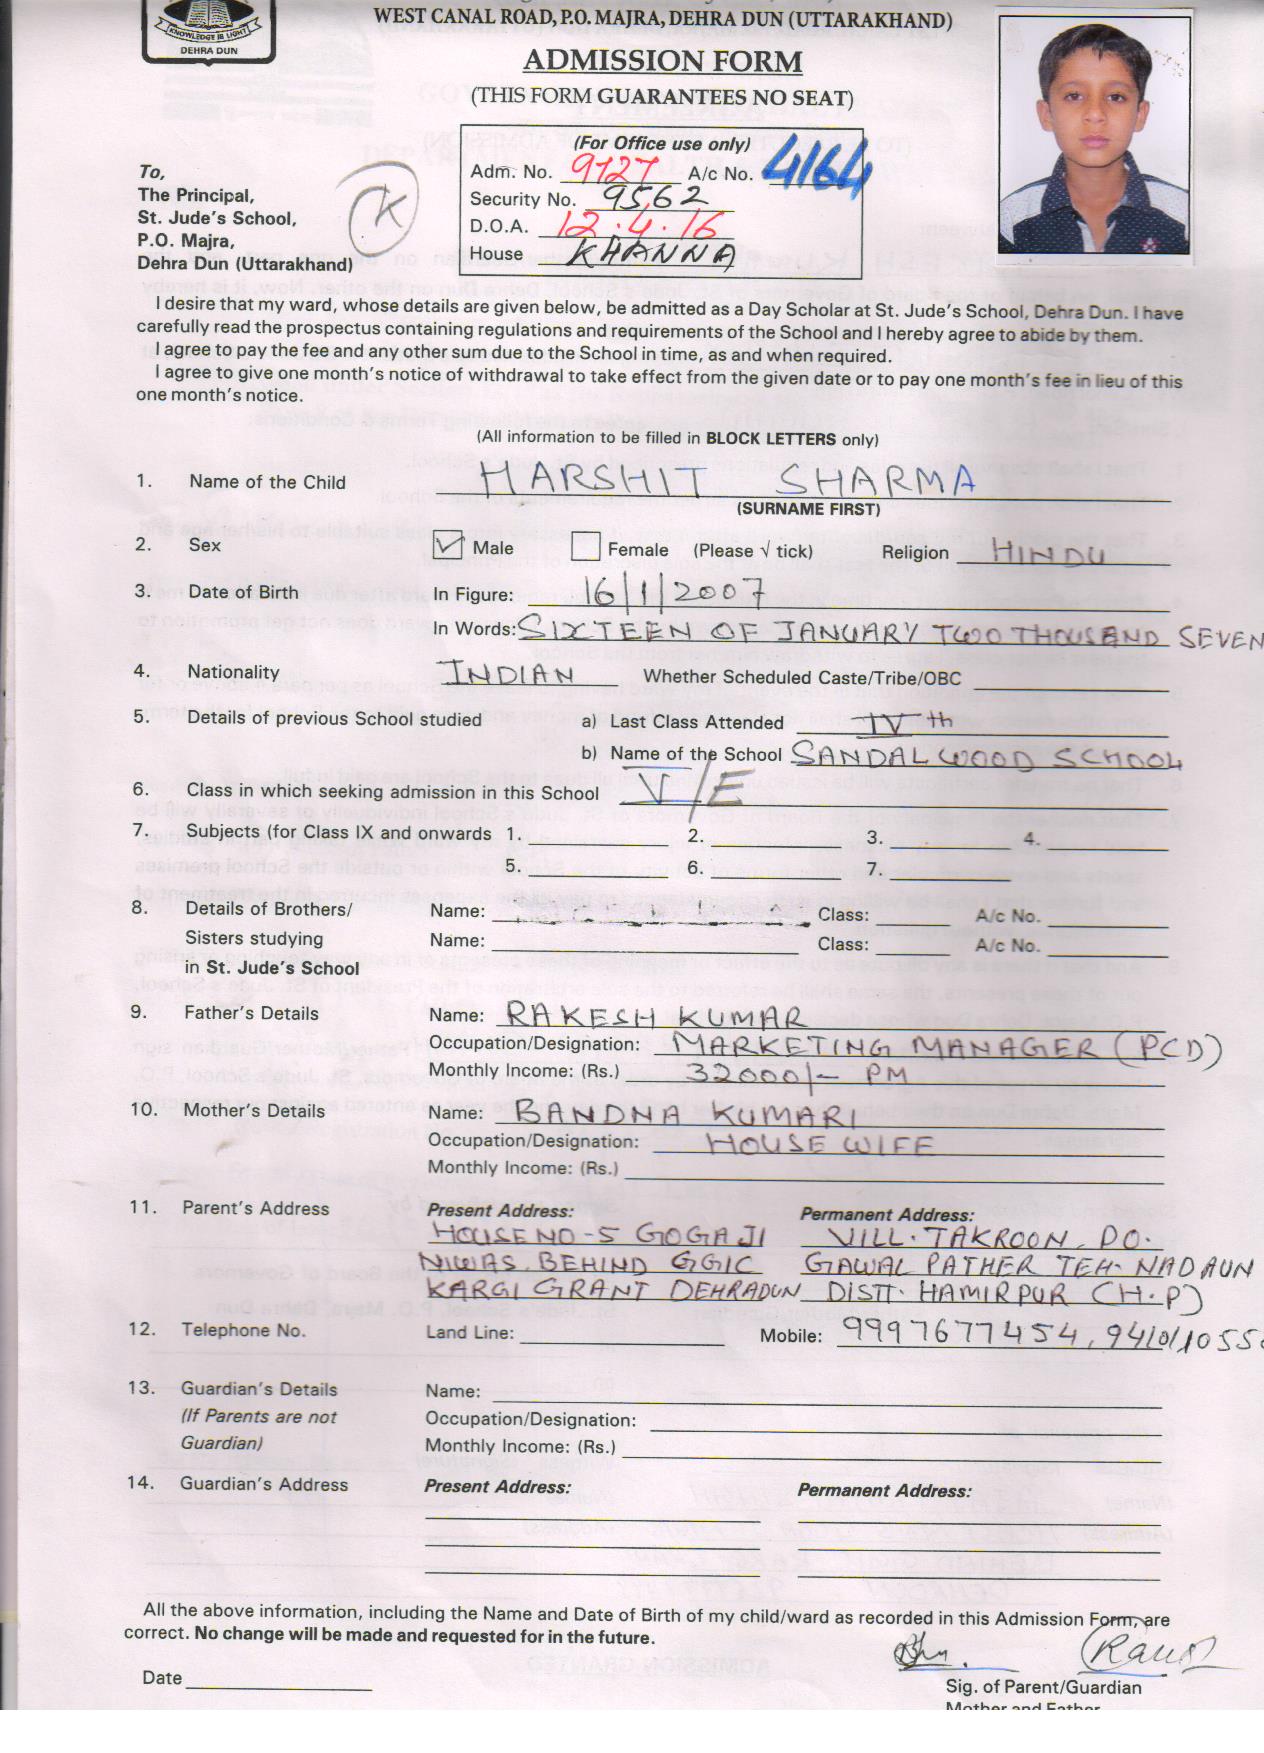 KNOWLEDGE IS LIGHT
DEHRA DUN
WEST CANAL ROAD, P.O. MAJRA, DEHRA DUN (UTTARAKHAND)
ADMISSION FORM
(THIS FORM GUARANTEES NO SEAT)
(For Office use only)
Adm. No. 9727 A/c No. 4164
Security No. 9562
D.O.A. 12.4.16
House KHANNA
To,
The Principal,
St. Jude's School,
P.O. Majra,
Dehra Dun (Uttarakhand)
I desire that my ward, whose details are given below, be admitted as a Day Scholar at St. Jude's School, Dehra Dun. I have
carefully read the prospectus containing regulations and requirements of the School and I hereby agree to abide by them.
I agree to pay the fee and any other sum due to the School in time, as and when required.
I agree to give one month's notice of withdrawal to take effect from the given date or to pay one month's fee in lieu of this
one month's notice.
(All information to be filled in BLOCK LETTERS only)
1. Name of the Child HARSHIT SHARMA
(SURNAME FIRST)
2. Sex Male Female (Please √ tick) Religion HINDU
3. Date of Birth In Figure: 16/1/2007
In Words: SIXTEEN OF JANUARY TWO THOUSAND SEVEN
4. Nationality INDIAN Whether Scheduled Caste/Tribe/OBC
5. Details of previous School studied a) Last Class Attended IVth
b) Name of the School SANDALWOOD SCHOOL
6. Class in which seeking admission in this School V/E
7. Subjects (for Class IX and onwards 1. 2. 3. 4.
5. 6. 7.
8. Details of Brothers/ Name: Class: A/c No.
Sisters studying Name: Class: A/c No.
in St. Jude's School
9. Father's Details Name: RAKESH KUMAR
Occupation/Designation: MARKETING MANAGER (PCD)
Monthly Income: (Rs.) 32000/- PM
10. Mother's Details Name: BANDNA KUMARI
Occupation/Designation: HOUSE WIFE
Monthly Income: (Rs.)
11. Parent's Address Present Address: Permanent Address:
HOUSE NO-5 GOGAJI VILL. TAKROON, PO.
NIWAS. BEHIND GGIC GAWAL PATHER TEH- NADAUN
KARGI GRANT DEHRADUN DISTT. HAMIRPUR (H.P)
12. Telephone No. Land Line: Mobile: 9997677454,
13. Guardian's Details Name:
(If Parents are not Occupation/Designation:
Guardian) Monthly Income: (Rs.)
14. Guardian's Address Present Address: Permanent Address:
All the above information, including the Name and Date of Birth of my child/ward as recorded in this Admission Form, are
correct. No change will be made and requested for in the future.
Date
Sig. of Parent/Guardian
Mother and Father